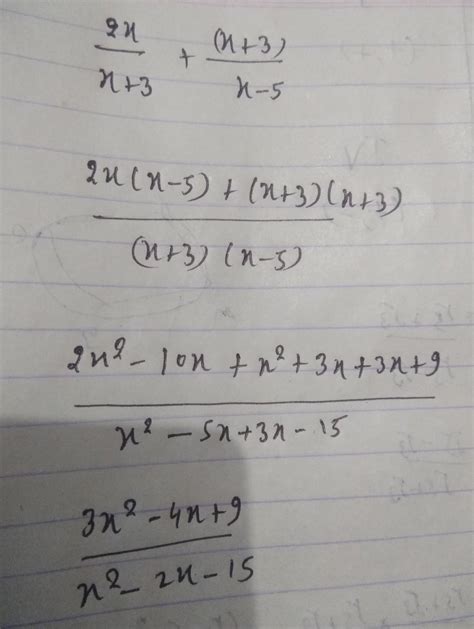 2x/x+3 + (x+3)/x-5
2x(x-5) + (x+3)(x+3)/(x+3) (x-5)
2x² - 10x + x² + 3x + 3x + 9/x² - 5x + 3x - 15
3x² - 4x + 9/x² - 2x - 15